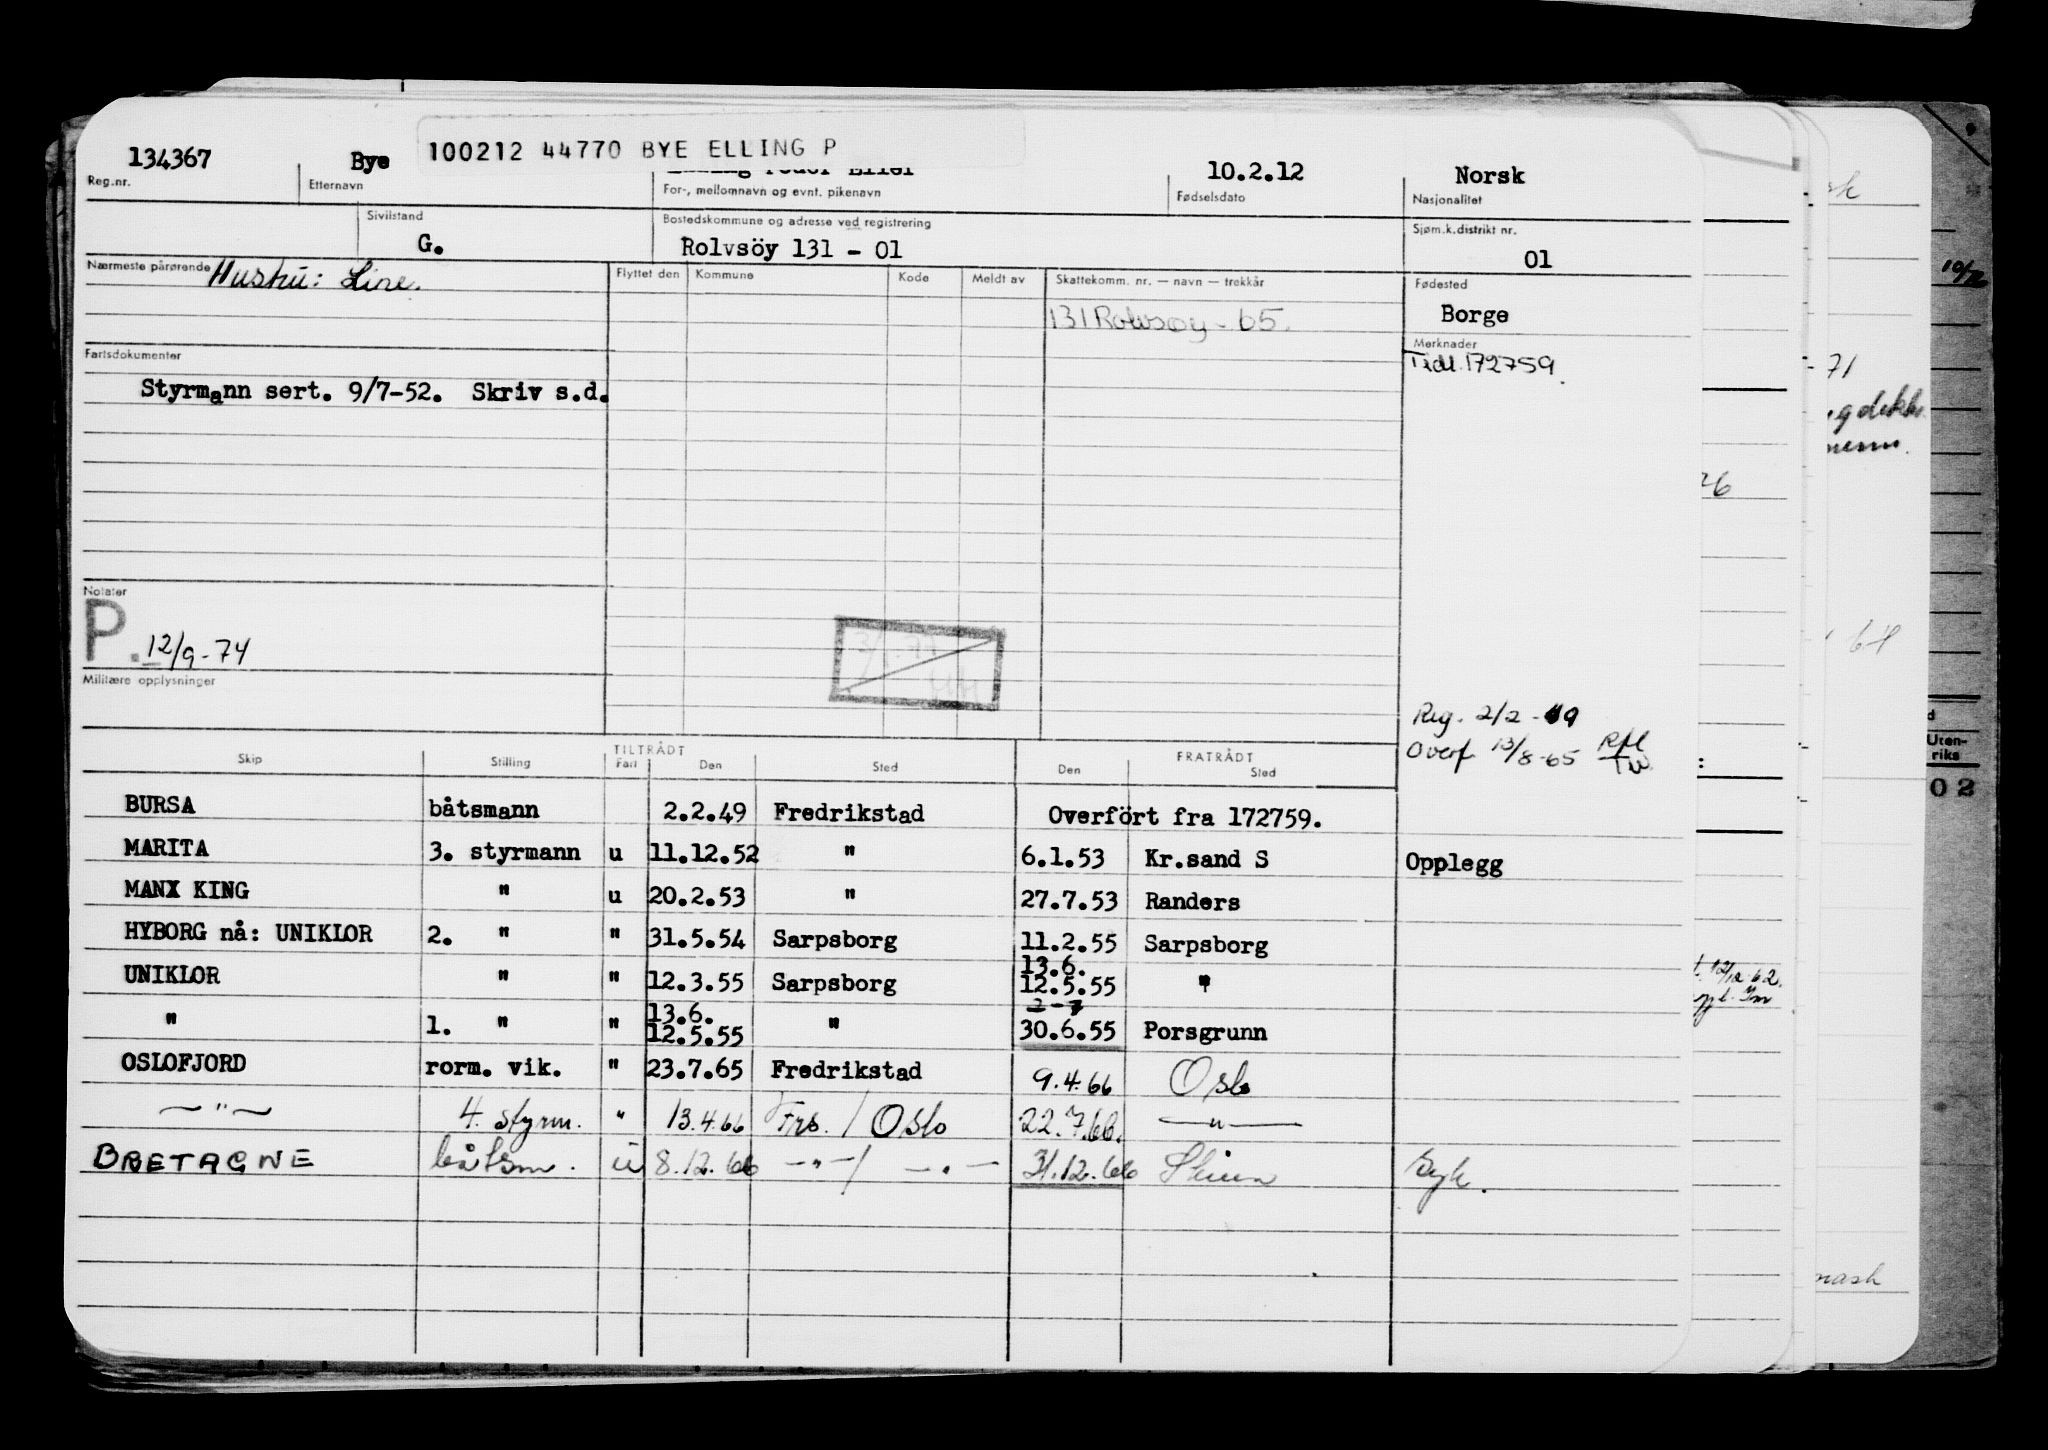 100212 44770 BYE ELLING P
134367 Bye 10.2.12 Norsk
Reg.nr. Etternavn For-, mellomnavn og evnt. pikenavn Fødselsdato Nasjonalitet
Sivilstand Bostedskommune og adresse ved registrering Sjøm.k.distrikt nr.
G. Rolvsöy 131 - 01 01
Nærmeste pårørende Hustru: Line. Flyttet den Kommune Kode Meldt av Skattekomm. nr. — navn — trekkår Fødested
131 Rolvsøy - 65. Borge
Merknader
Tidl. 172759.
Fartsdokumenter
Styrmann sert. 9/7-52. Skriv s.d.
Notater
P. 12/9-74
Militære opplysninger
Reg. 2/2-49
Overf 13/8-65
TILTRÅDT FRATRÅDT
Skip Stilling Fart Den Sted Den Sted
BURSA båtsmann 2.2.49 Fredrikstad Overfört fra 172759.
MARITA 3. styrmann u 11.12.52 " 6.1.53 Kr.sand S Opplegg
MANX KING " u 20.2.53 " 27.7.53 Randers
HYBORG nå: UNIKLOR 2. " " 31.5.54 Sarpsborg 11.2.55 Sarpsborg
13.6.
UNIKLOR " " 12.3.55 Sarpsborg 12.5.55 "
13.6. 2-7
" 1. " " 12.5.55 " 30.6.55 Porsgrunn
OSLOFJORD rorm. vik. " 23.7.65 Fredrikstad 9.4.66 Oslo
—"— 4. styrm. " 13.4.66 Frs. / Oslo 22.7.66. —"—
BRETAGNE båtsm. u 8.12.66 —"— / —"— 31.12.66 Syk.
10/2
71
26
64
Uten-
riks
02